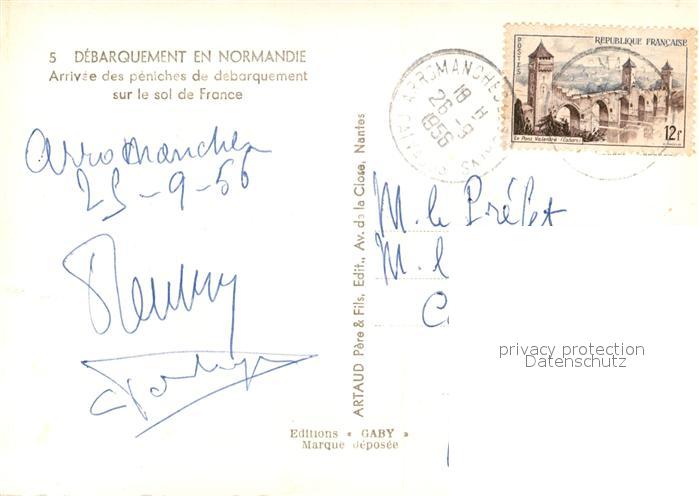 5 DÉBARQUEMENT EN NORMANDIE
Arrivée des péniches de débarquement
sur le sol de France
Arromanches
25-9-56
ARTAUD Père & Fils, Edit., Av. de la Close, Nantes
Editions « GABY »
Marque déposée
ARROMANCHES
18 H
26-9
1956
CALVADOS
POSTES
REPUBLIQUE FRANÇAISE
Le Pont Valentré (Cahors)
12f
M. le Préfet
M. l
C
privacy protection
Datenschutz